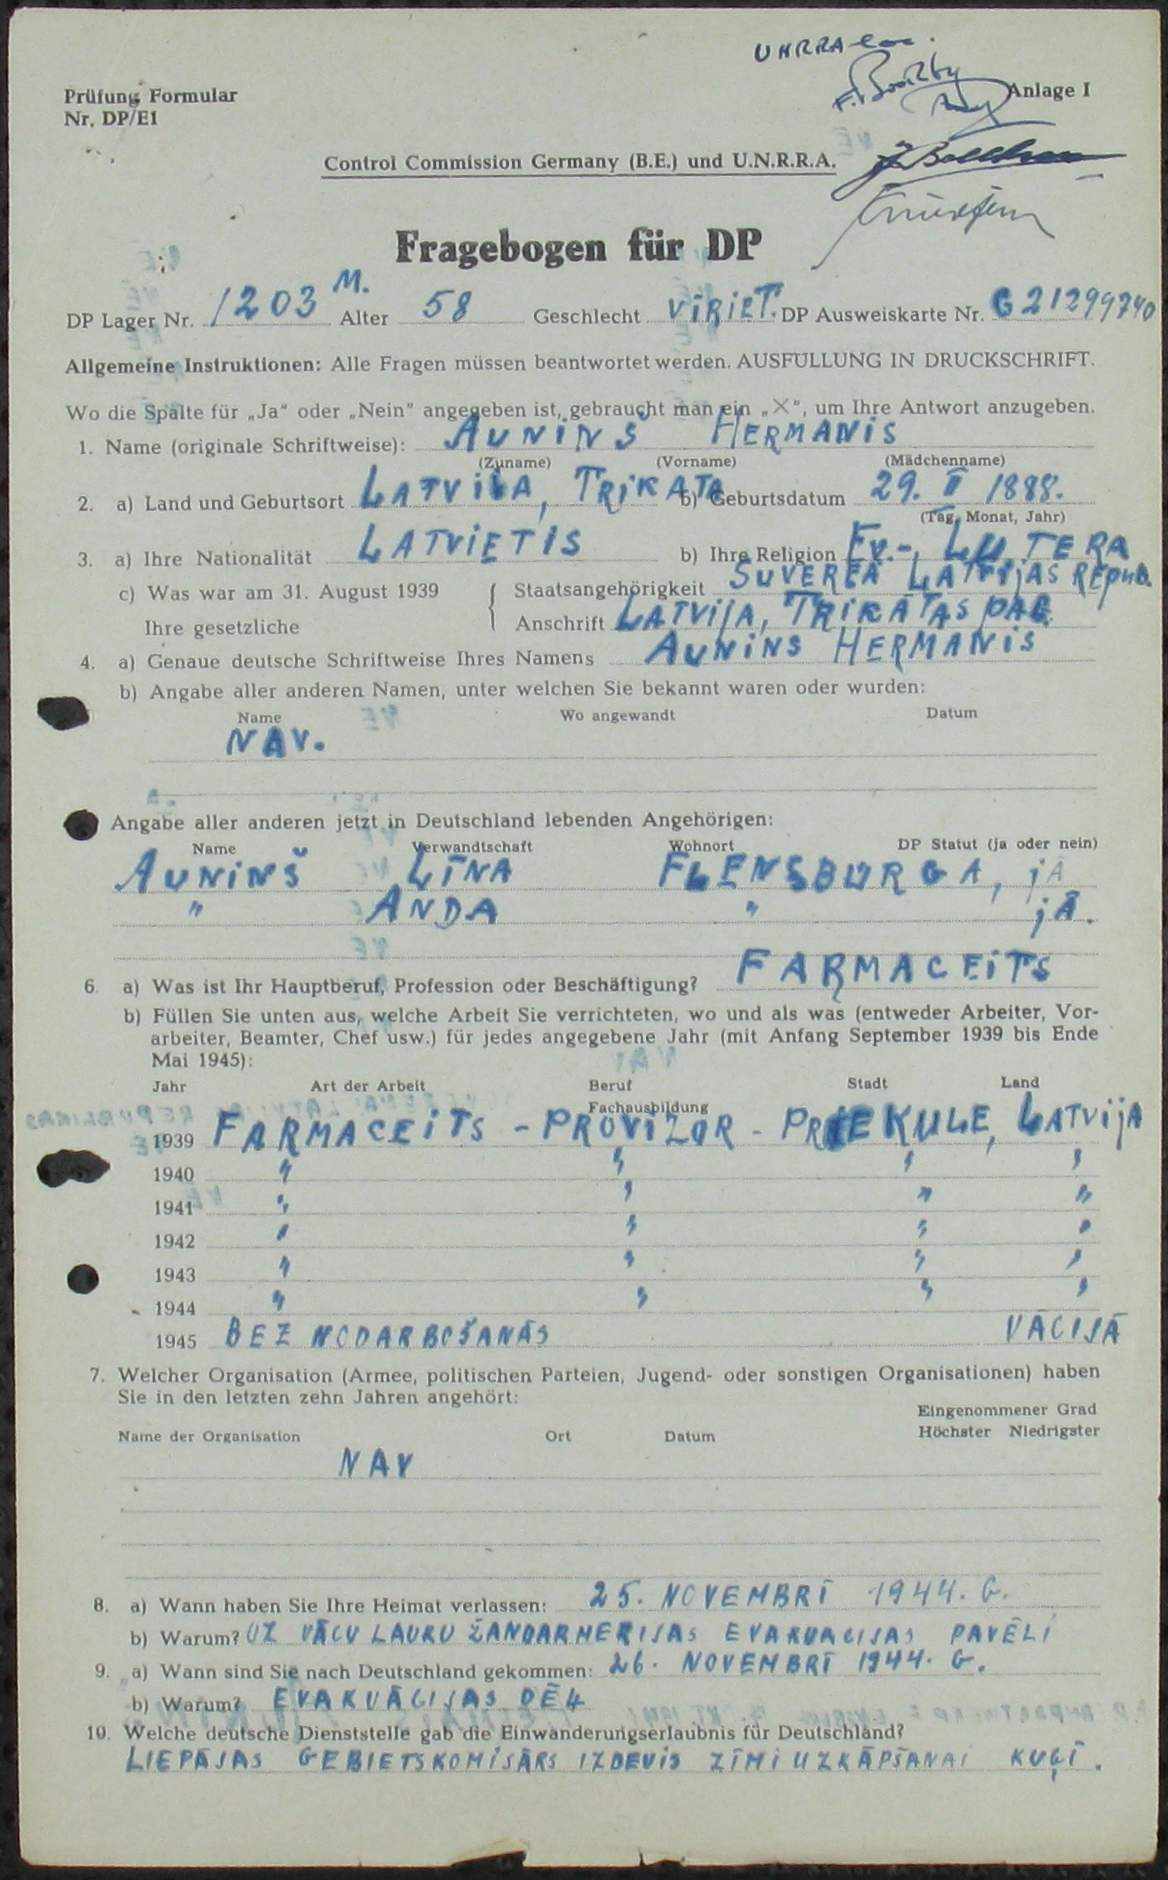 UNRRA
Prüfung Formular
Nr. DP/E1
Anlage I
Control Commission Germany (B.E.) und U.N.R.R.A.
Fragebogen für DP
DP Lager Nr. 1203 M. Alter 58 Geschlecht VĪRIET. DP Ausweiskarte Nr. G21299740
Allgemeine Instruktionen: Alle Fragen müssen beantwortet werden. AUSFÜLLUNG IN DRUCKSCHRIFT.
Wo die Spalte für „Ja“ oder „Nein“ angegeben ist, gebraucht man ein „X“, um Ihre Antwort anzugeben.
1. Name (originale Schriftweise): AUNIŅŠ HERMANIS
(Zuname) (Vorname) (Mädchenname)
2. a) Land und Geburtsort LATVIJA, TRIKATA b) Geburtsdatum 29. II 1888.
(Tag, Monat, Jahr)
3. a) Ihre Nationalität LATVIETIS b) Ihre Religion EV.-, LUTERA
c) Was war am 31. August 1939 Staatsangehörigkeit SUVERĒA LATVIJAS REPUB.
Ihre gesetzliche Anschrift LATVIJA, TRIKĀTAS PAG.
4. a) Genaue deutsche Schriftweise Ihres Namens AUNINS HERMANIS
b) Angabe aller anderen Namen, unter welchen Sie bekannt waren oder wurden:
Name Wo angewandt Datum
NAV.
Angabe aller anderen jetzt in Deutschland lebenden Angehörigen:
Name Verwandtschaft Wohnort DP Statut (ja oder nein)
AUNIŅŠ LĪNA FLENSBURGA, jĀ
" ANDA " jĀ.
6. a) Was ist Ihr Hauptberuf, Profession oder Beschäftigung? FARMACEITS
b) Füllen Sie unten aus, welche Arbeit Sie verrichteten, wo und als was (entweder Arbeiter, Vor-
arbeiter, Beamter, Chef usw.) für jedes angegebene Jahr (mit Anfang September 1939 bis Ende
Mai 1945):
Jahr Art der Arbeit Beruf Stadt Land
Fachausbildung
1939 FARMACEITS - PROVIZOR - PRIEKULE, LATVIJA
1940 " " " "
1941 " " " "
1942 " " " "
1943 " " " "
1944 " " " "
1945 BEZ NODARBOŠANĀS VĀCIJĀ
7. Welcher Organisation (Armee, politischen Parteien, Jugend- oder sonstigen Organisationen) haben
Sie in den letzten zehn Jahren angehört:
Eingenommener Grad
Name der Organisation Ort Datum Höchster Niedrigster
NAV
8. a) Wann haben Sie Ihre Heimat verlassen: 25. NOVEMBRĪ 1944. G.
b) Warum? UZ VĀCU LAUKU ŽANDARMERIJAS EVAKUACIJAS PAVĒLI
9. a) Wann sind Sie nach Deutschland gekommen: 26. NOVEMBRĪ 1944. G.
b) Warum? EVAKUĀCIJAS DĒĻ
10. Welche deutsche Dienststelle gab die Einwanderungserlaubnis für Deutschland?
LIEPĀJAS GEBIETSKOMISĀRS IZDEVIS ZĪMI UZKĀPŠANAI KUĢĪ.